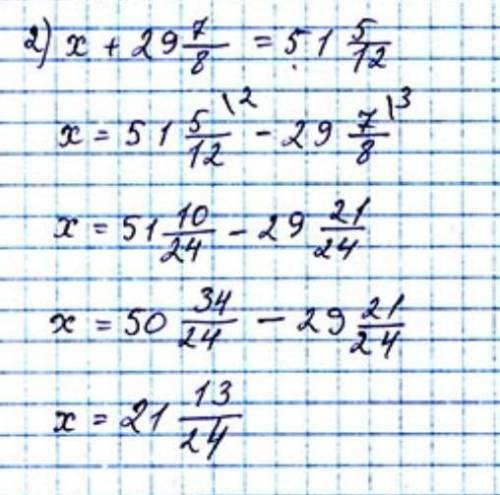 2) x + 29 7/8 = 51 5/12
x = 51 5/12 \2 - 29 7/8 \3
x = 51 10/24 - 29 21/24
x = 50 34/24 - 29 21/24
x = 21 13/24